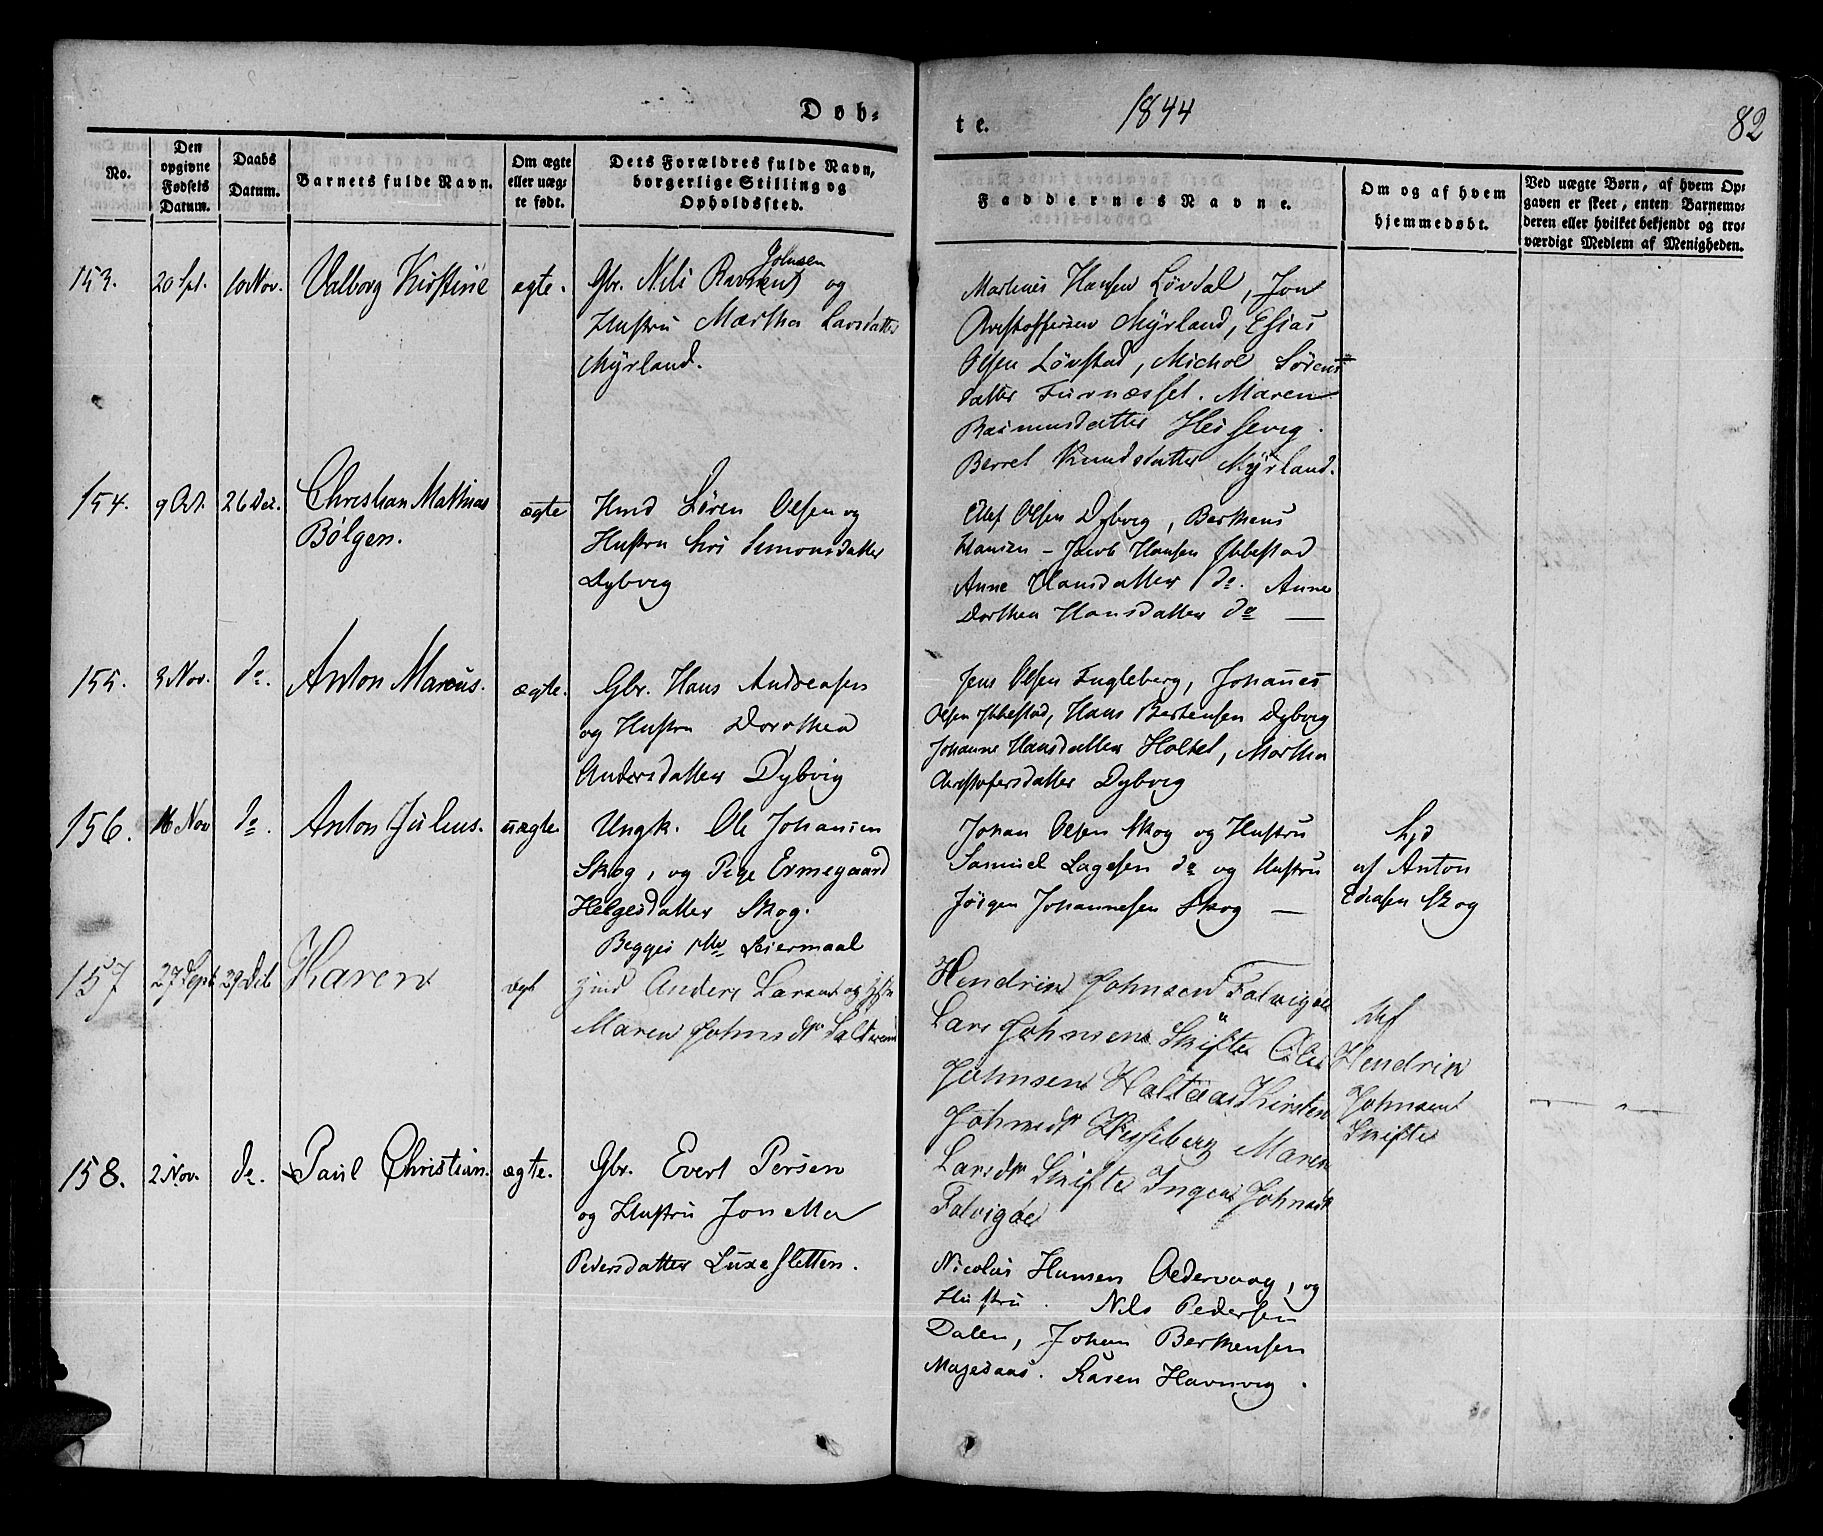 Døb-
te.
1844
82
No.
Den opgivne Fødsels Datum.
Daabs Datum.
Barnets fulde Navn.
Om ægte eller uæg- te født.
Dets Forældres fulde Navn, borgerlige Stilling og Opholdssted.
Faddernes Navne.
Om og af hvem hjemmedøbt.
Ved uægte Børn, af hvem Op- gaven er skeet, enten Barnemo- deren eller hvilket bekjendt og tro- værdigt Medlem af Menigheden.
153. 20 Spt. 10 Nov. Valborg Kirstine ægte. Gbr. Nils Johnsen og
Hustru Martha Larsdatter
Myrland.
Martinus Hansen Løvdal, Jon
Christoffersen Myrland, Esias
Olsen Løvstad, Michol Sørens
datter Furnæsset. Maren
Rasmusdatter Hessevig.
Berret Knudsdatter Myrland.
154. 9 Oct. 26 Dec. Christian Mathias ægte Hmd Søren Olsen og
Bølgen. Hustru Siri Simonsdatter
Dybvig
Ellef Olsen Dybvig, Berthens
Hansen - Jacob Hansen Ibbestad
Anne Hansdatter do. Anne
Dorthea Hansdatter do —
155. 3 Nov. do. Anton Marcus. ægte. Gbr. Hans Andreasen
og Hustru Dorothea
Andersdatter Dybvig
Jens Olsen Fugleberg, Johannes
Olsen Ibbestad, Hans Bertensen Dybvig
Johanne Hansdatter Holtet, Martha
Christofersdatter Dybvig
156. 16 Nov do. Anton Julius. uægte Ungk. Ole Johansen
Skog, og Pige Ermegaard
Helgesdatter Skog.
Begges 1ste Leiermaal
Johan Olsen Skog og Hustru
Samuel Lagesen do og Hustru
Jørgen Johannesen Skog —
hjd
af Anton
Skog
157 27 Sept 29 Dec Karen ægt Hmd Anders Larsen og Hstr
Maren Johnsdtr
Hendrik Johnsen Falvigøe
Lars Johnsen Skifte Ole
Johnsen Holtaas Kirsten
Johnsdtr Maren
Larsdtr Skifte Inger Johnsdtr
Falvigøe
Hendrik
Johnsen
Skifte
158. 2 Nov. do. Paul Christian. ægte. Gbr. Evert Persen
og Hustru Jonetta
Pedersdatter Luxesletten.
Nicolai Hansen Oldervaag, og
Hustru. Nils Pedersen
Dalen, Johan Berthensen
Magesaas. Karen Havnvig.